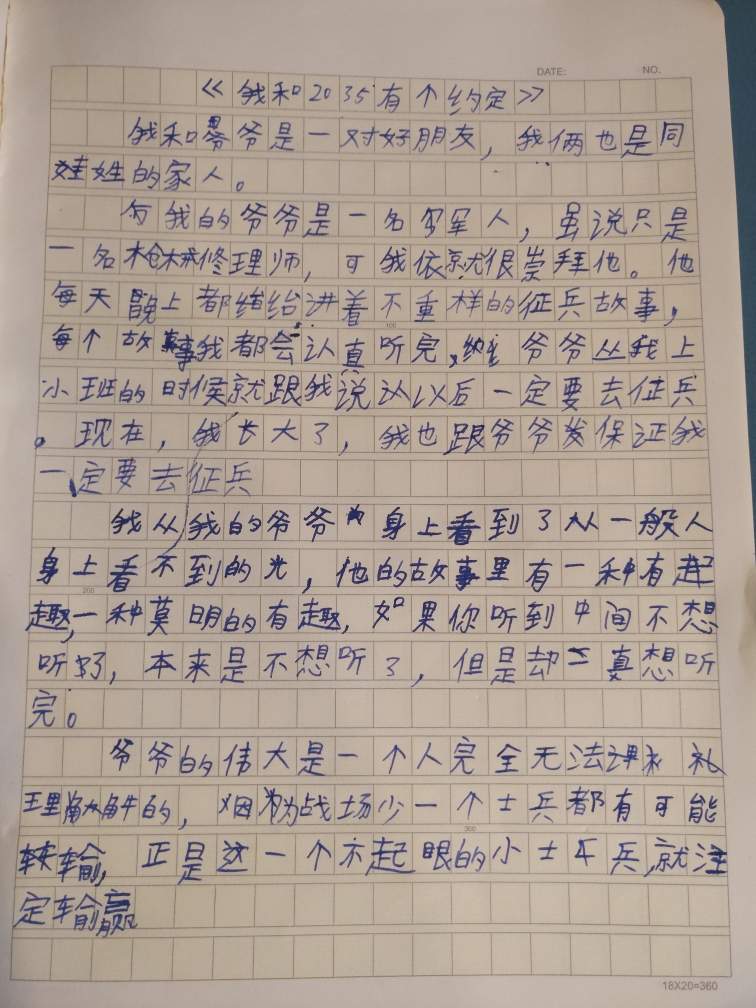 DATE: NO.
《我和2035有个约定》
我和爷爷是一对好朋友，我俩也是同
姓的家人。
我的爷爷是一名军人，虽说只是
一名枪械修理师，可我依就很崇拜他。他
每天晚上都给讲着不重样的征兵故事，
每个故事我都会认真听完，爷爷从我上
小班的时候就跟我说以后一定要去征兵
。现在，我长大了，我也跟爷爷发保证我
一定要去征兵
我从我的爷爷身上看到了从一般人
身上看不到的光，他的故事里有一种有
趣，一种莫明的有趣，如果你听到中间不想
听了，本来是不想听了，但是却真想听
完。
爷爷的伟大是一个人完全无法
理解的，因为战场少一个士兵都有可能
输，正是这一个不起眼的小士兵，就注
定输赢
100
200
300
18X20=360